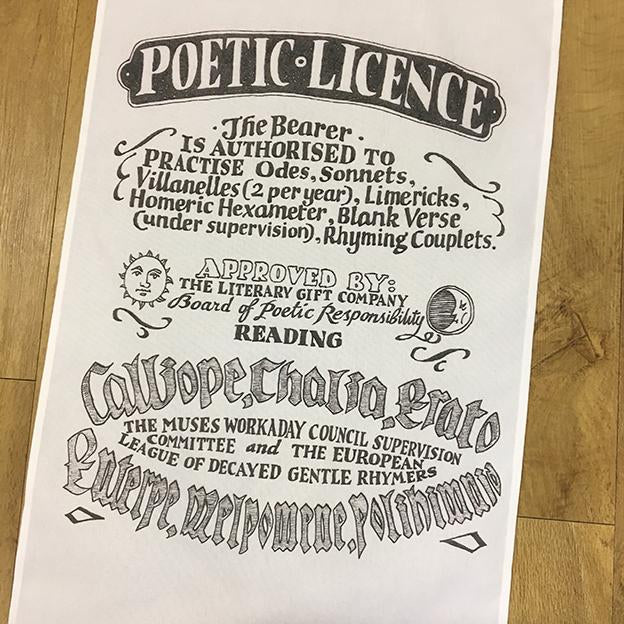 POETIC · LICENCE
· The Bearer ·
IS AUTHORISED TO
PRACTISE Odes, Sonnets,
Villanelles (2 per year), Limericks,
Homeric Hexameter, Blank Verse
(under supervision), Rhyming Couplets.
APPROVED BY:
THE LITERARY GIFT COMPANY
Board of Poetic Responsibility
READING
Calliope, Thalia, Erato
THE MUSES WORKADAY COUNCIL SUPERVISION
COMMITTEE and THE EUROPEAN
LEAGUE OF DECAYED GENTLE RHYMERS
Euterpe, Melpomene,